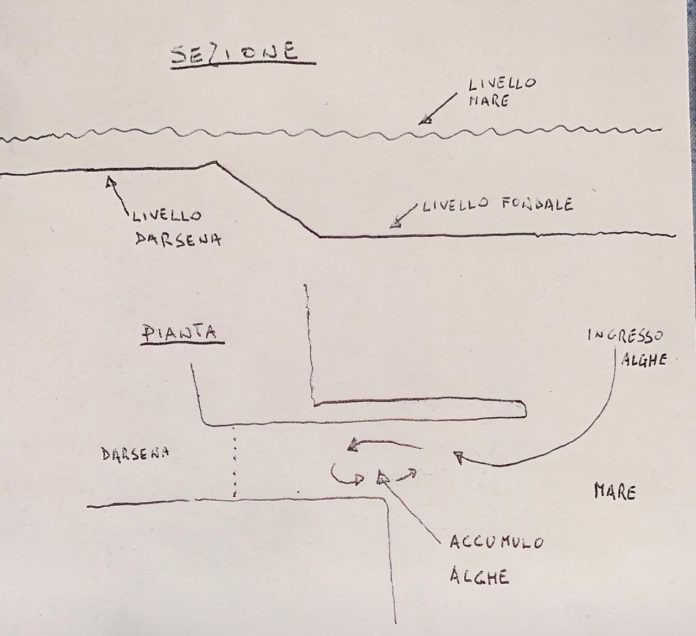 SEZIONE
LIVELLO
MARE
LIVELLO
DARSENA
LIVELLO FONDALE
PIANTA
INGRESSO
ALGHE
DARSENA
MARE
ACCUMULO
ALGHE